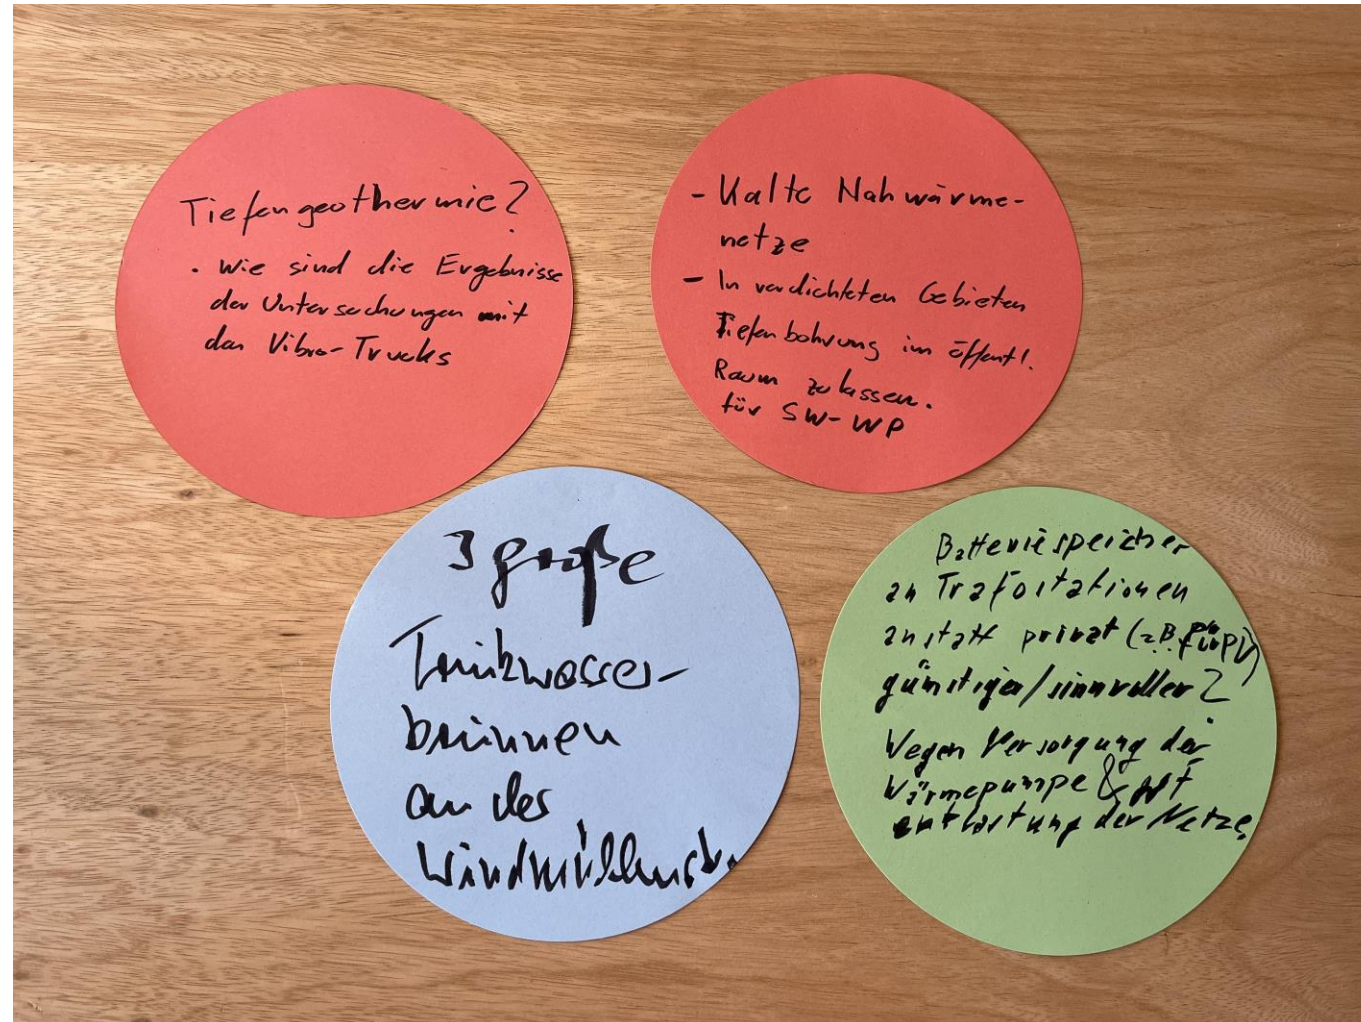 Tiefengeothermie?
. wie sind die Ergebnisse
der Untersuchungen mit
den Vibro-Trucks
- Kalte Nahwärme-
netze
- In verdichteten Gebieten
Tiefenbohrung im öffentl.
Raum zulassen.
für SW-WP
3 große
Trinkwasser-
brunnen
an der
Windmühlenstr.
Batteriespeicher
an Trafostationen
anstatt privat (z.B. für PV)
günstiger/sinnvoller?
Wegen Versorgung der
Wärmepumpe &
entlastung der Netze